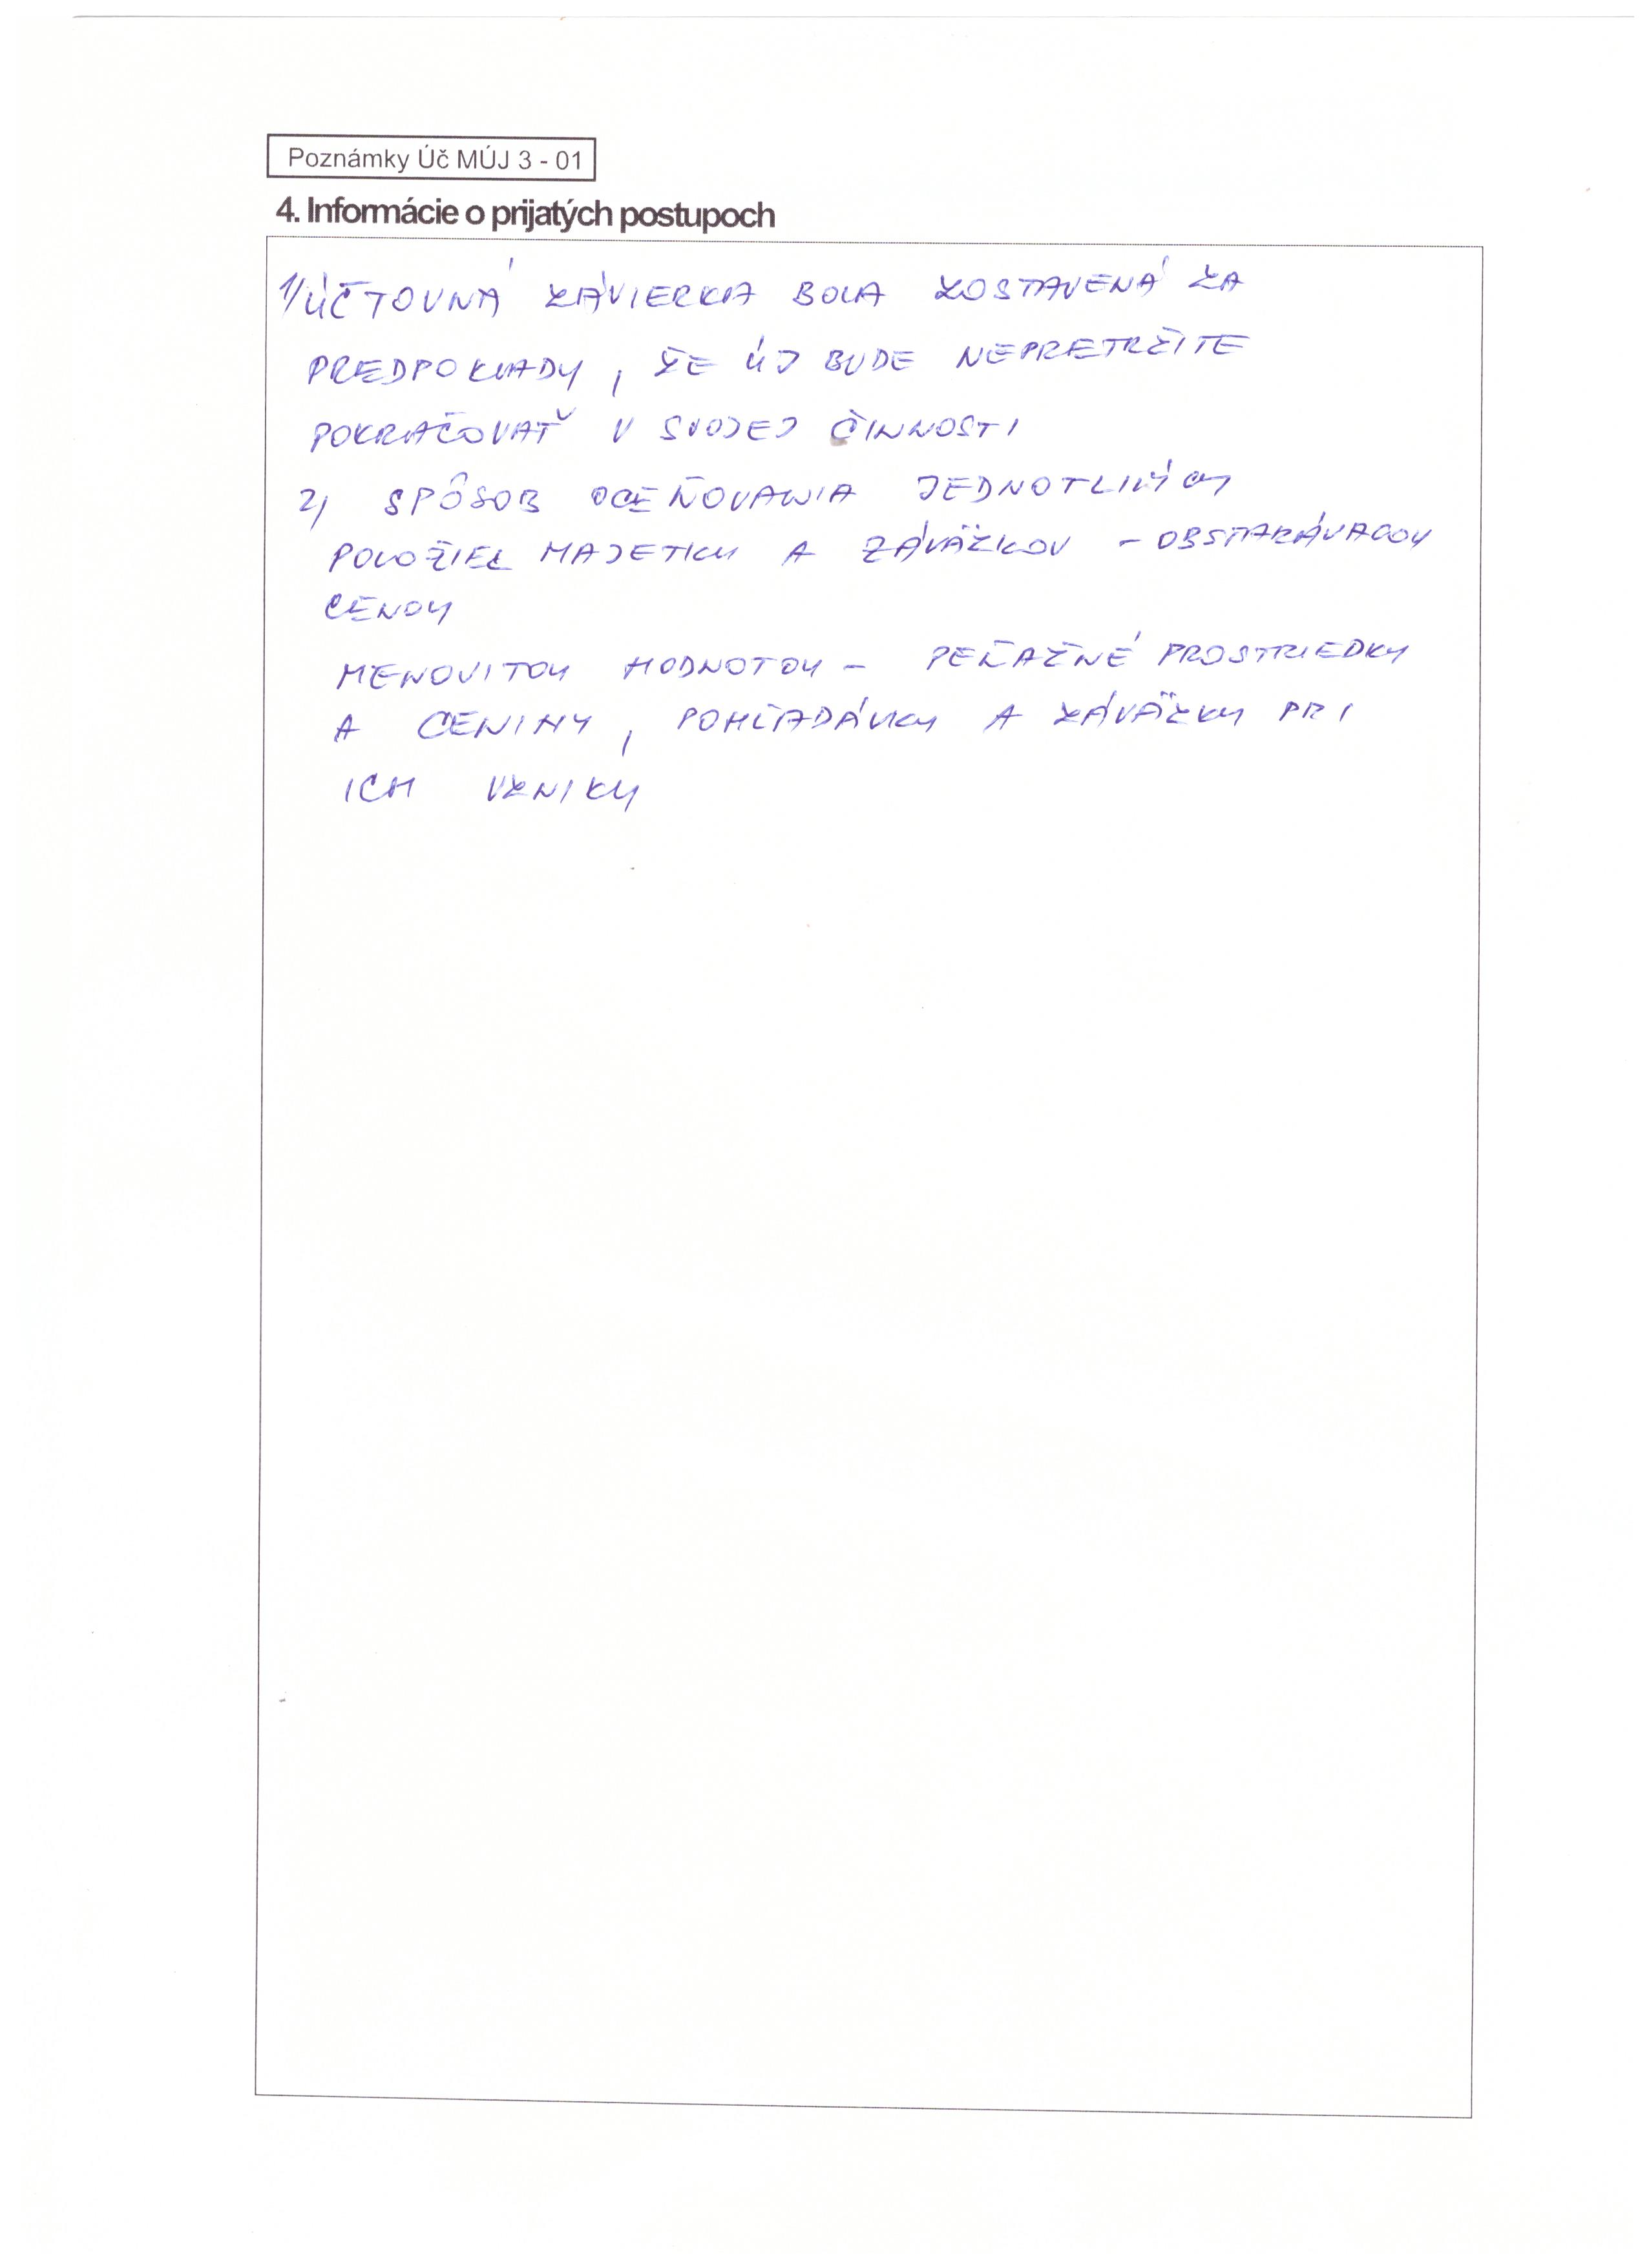 Poznámky Úč MÚJ 3 - 01
4. Informácie o prijatých postupoch
1/ ÚČTOVNÁ ZÁVIERKA BOLA ZOSTAVENÁ ZA
PREDPOKLADU, ŽE ÚJ BUDE NEPRETRŽITE
POKRAČOVAŤ V SVOJEJ ČINNOSTI
2/ SPÔSOB OCEŇOVANIA JEDNOTLIVÝCH
POLOŽIEK MAJETKU A ZÁVÄZKOV - OBSTARÁVACOU
CENOU
MENOVITOU HODNOTOU - PEŇAŽNÉ PROSTRIEDKY
A CENINY, POHĽADÁVKY A ZÁVÄZKY PRI
ICH VZNIKU